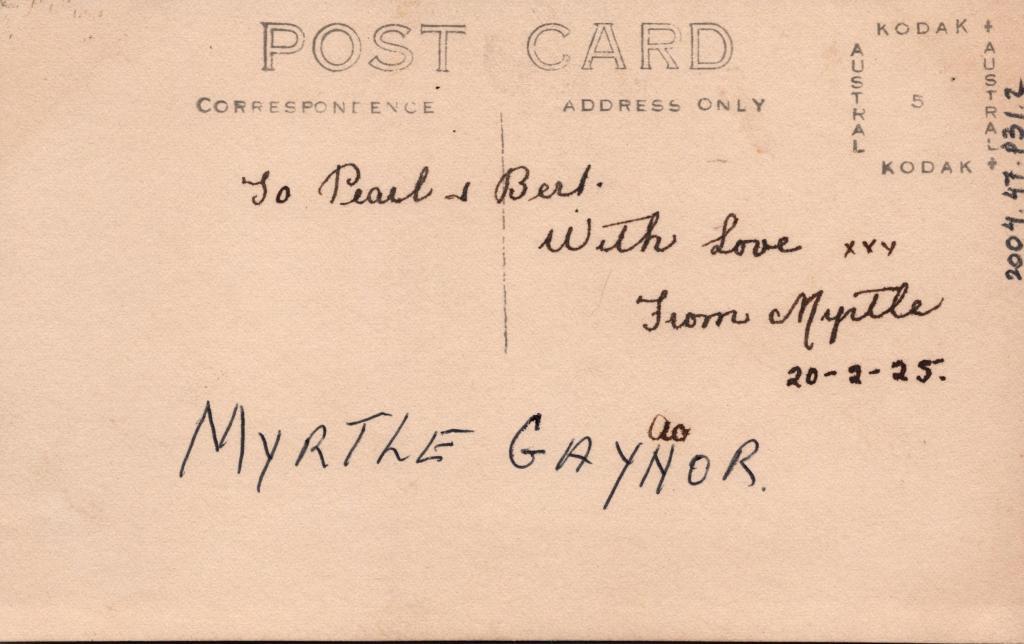 POST CARD
CORRESPONDENCE
ADDRESS ONLY
KODAK
AUSTRAL
5
AUSTRAL
KODAK
2004.47.P31.2
To Pearl & Bert.
With Love xxx
From Myrtle
20-2-25.
ao
MYRTLE GAYNOR.